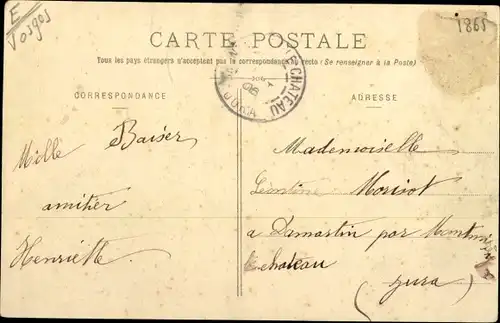 E
Vosges
1865
CARTE POSTALE
Tous les pays étrangers n'acceptent pas la correspondance au recto (Se renseigner à la Poste)
CHATEAU
JURA
CORRESPONDANCE
ADRESSE
Mille Baiser
amitier
Henriette
Mademoiselle
Léontine Morisot
a Damartin par Montmi
le chateau
(jura)